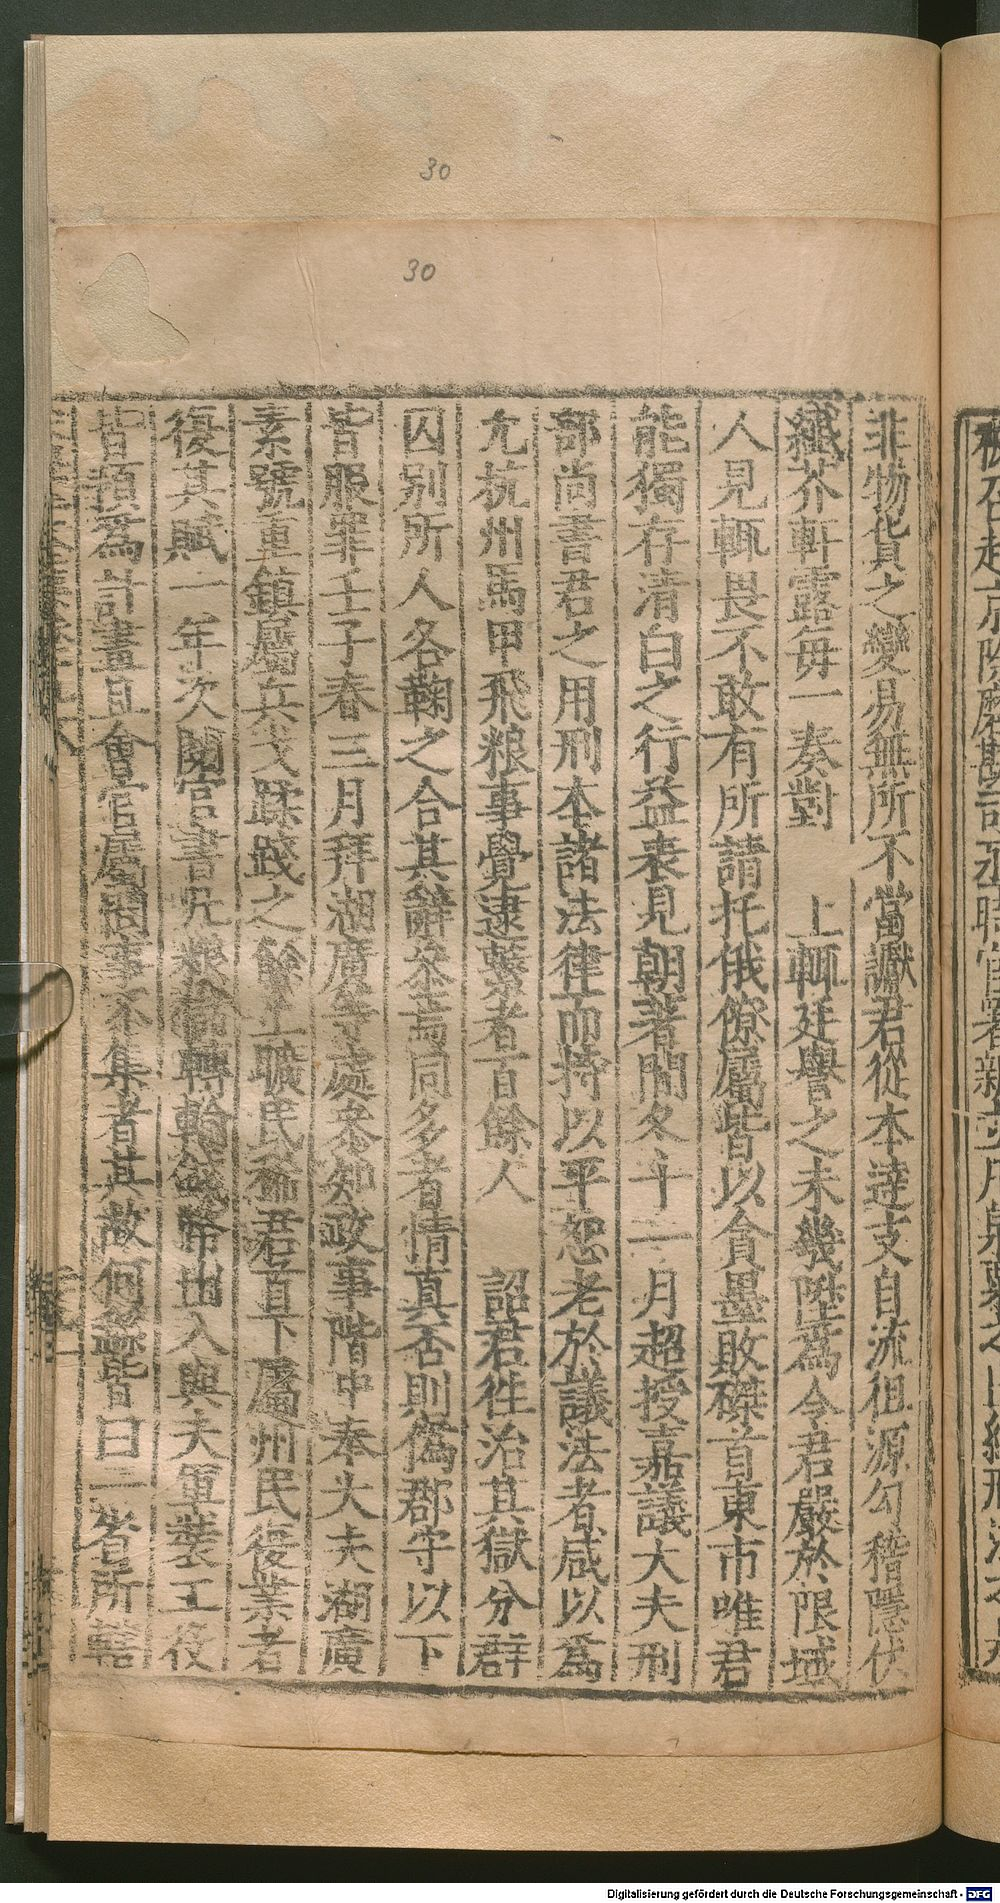 30
30
非物貨之變易無所不當讞君從本逹支自流徂源勾稽隱伏
纎芥軒露毎一奏對　上輒廷譽之未幾陞為令君嚴於限域
人見輒畏不敢有所請托俄僚屬皆以貪墨敗磔首東市唯君
能獨存清白之行益表見朝著閒冬十一月超授嘉議大夫刑
部尚書君之用刑本諸法律而持以平恕老於議法者咸以為
允杭州馬甲飛粮事覺逮繫者百餘人　詔君徃治其獄分群
囚別所人各鞠之合其辭叅焉同多者情真否則偽郡守以下
皆服罪壬子春三月拜湖廣等處叅知政事階中奉大夫湖廣
素號重鎮屬兵戈蹂踐之餘土曠民 君首下屬州民復業者
復其賦一年次閱官書凡粮 轉輸錢帛出入與夫軍裝工役
皆預為計畫且會官屬 事不集者其故何 皆曰三省所轄
Digitalisierung gefördert durch die Deutsche Forschungsgemeinschaft - DFG